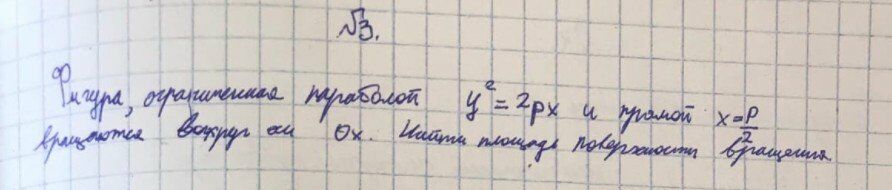 №3.
Фигура, ограниченная параболой y² = 2px и прямой x = p/2
вращается вокруг оси Ox. Найти площадь поверхности вращения